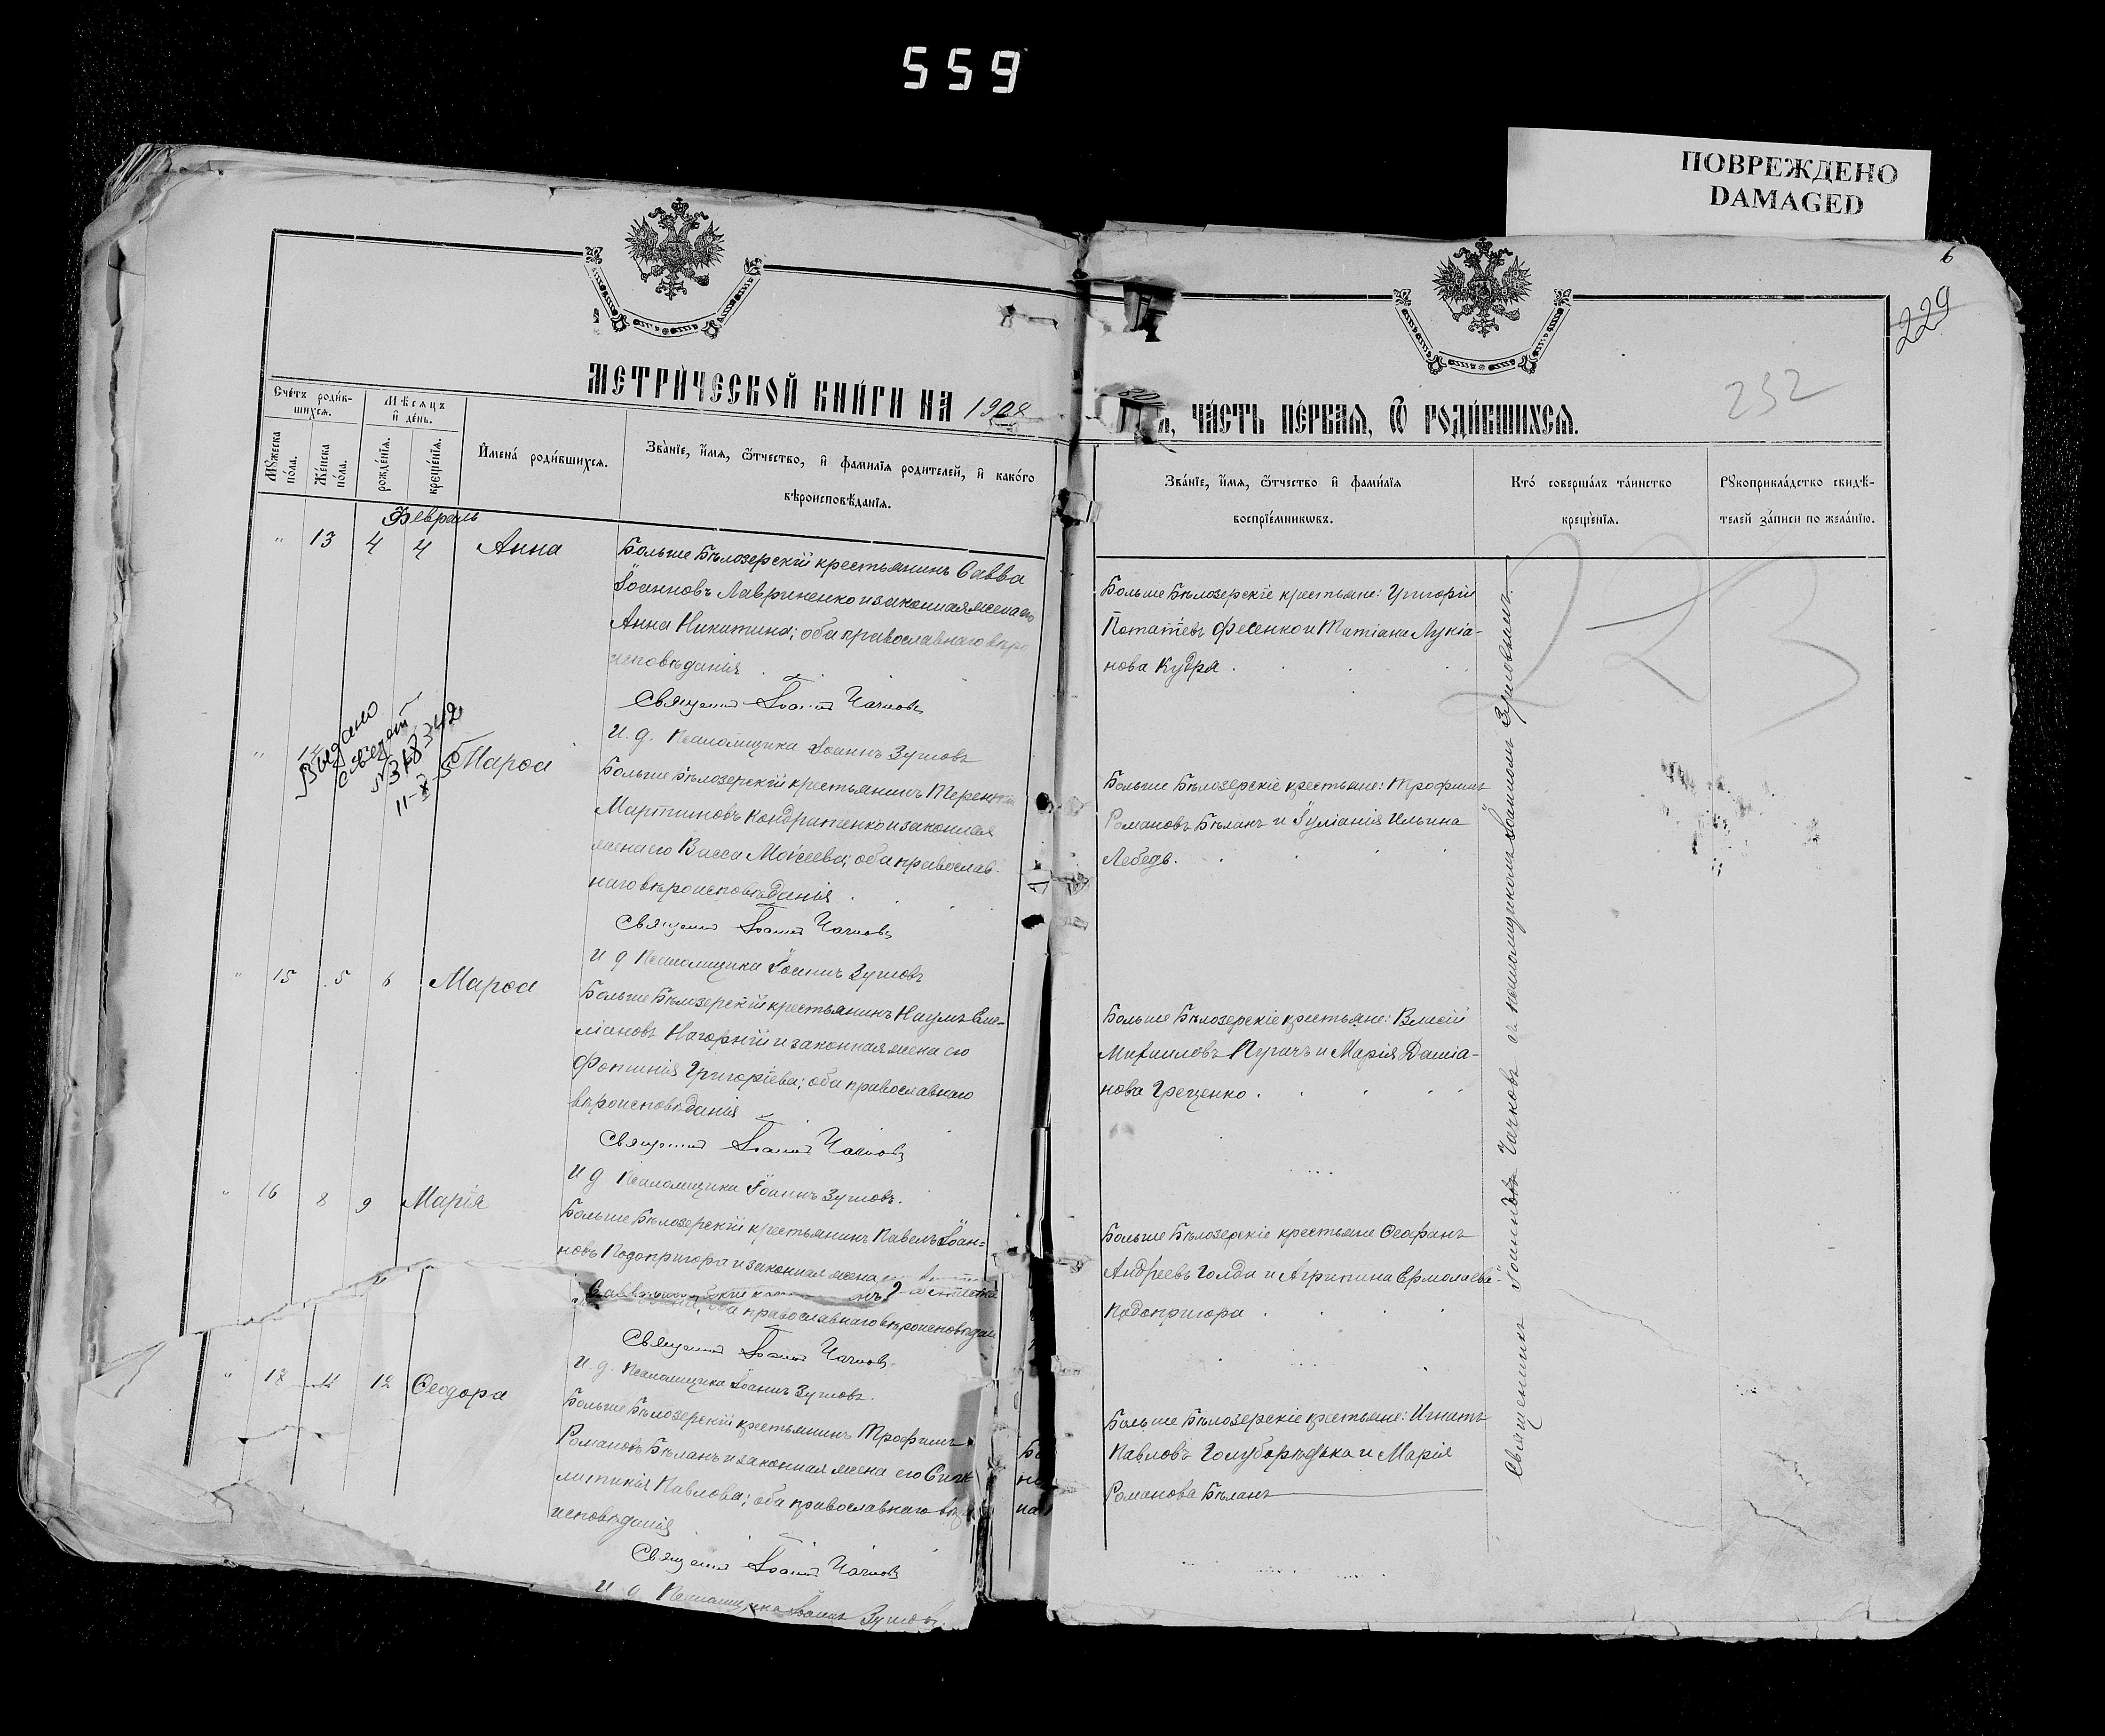 559
ПОВРЕЖДЕНО
DAMAGED
6
229
232
МЕТРИ́ЧЕСКОЙ КНИ́ГИ НА 1908
ЧА́СТЬ ПЕ́РВАЯ, Ѿ РОДИ́ВШИХСЯ.
Сче́тъ роди́в-
шихся.
Мѣсяцъ
и де́нь.
Мꙋ́жеска
по́ла.
Же́нска
по́ла.
рожде́нїя.
креще́нїя.
Имена́ роди́вшихся.
Зва́нїе, и́мя, ѻ́тчество, и фами́лїя родителей, и како́го
вѣроисповѣ́данїя.
Зва́нїе, и́мя, ѻ́тчество и фами́лїя
воспрїе́мникѡвъ.
Кто́ соверша́лъ та́инство
креще́нїя.
Рꙋкоприкла́дство свидѣ́-
телей за́писи по жела́нїю.
Февраль
" 13 4 4 Анна
Больше Бѣлозерскій крестьянинъ Савва
Іоанновъ Лавриненко и законная жена его
Анна Никитина; оба православнаго вѣро
исповѣданія
Священник Іоаннъ Чачковъ
И. д. Псаломщика Іоаннъ Зушовъ
Больше Бѣлозерскіе крестьяне: Григорій
Потапіевъ Фесенко и Татіана Лукіа-
нова Кудря
223
"
Выдано
№ 318342
Марѳа
Больше Бѣлозерскій крестьянинъ Терентій
Мартиновъ Кондратенко и законная
жена его Васса Моисеева; оба православ-
наго вѣроисповѣданія
Священник Іоаннъ Чачковъ
И д Псаломщика Іоаннъ Зушовъ
Больше Бѣлозерскіе крестьяне: Трофимъ
Романовъ Бѣланъ и Іуліанія Ильина
Лебедь.
" 15 5 6 Марѳа
Больше Бѣлозерскій крестьянинъ Наумъ Еме-
ліановъ Нагорній и законная жена его
Фотинія Григоріева; оба православнаго
вѣроисповѣданія
Священник Іоаннъ Чачковъ
И д Псаломщика Іоаннъ Зушовъ.
Больше Бѣлозерскіе крестьяне: Власій
Михаиловъ Пугачъ и Марія Даміа-
нова Грещенко
" 16 8 9 Марія
Больше Бѣлозерскій крестьянинъ Павелъ Іоан=
новъ Подопригора и законная жена
оба православнаго вѣроисповѣдан
Священник Іоаннъ Чачковъ
И. д. Псаломщика Іоаннъ Зушовъ.
Больше Бѣлозерскіе крестьяне Ѳеофанъ
Андреевъ Голда и Агрипина Ермолаева
Подопригора
" 17 11 12 Ѳеодора
Больше Бѣлозерскій крестьянинъ Трофимъ
Романовъ Бѣланъ и законная жена его Синк
литикія Павлова; оба православнаго вѣро
исповѣданія
Священник Іоаннъ Чачковъ
И д Псаломщика Іоаннъ Зушовъ
Больше Бѣлозерскіе крестьяне: Игнатъ
Павловъ Голубородька и Марія
Романова Бѣланъ
Священникъ Іоаннъ Чачковъ съ псаломщикомъ Іоанномъ Зушовымъ